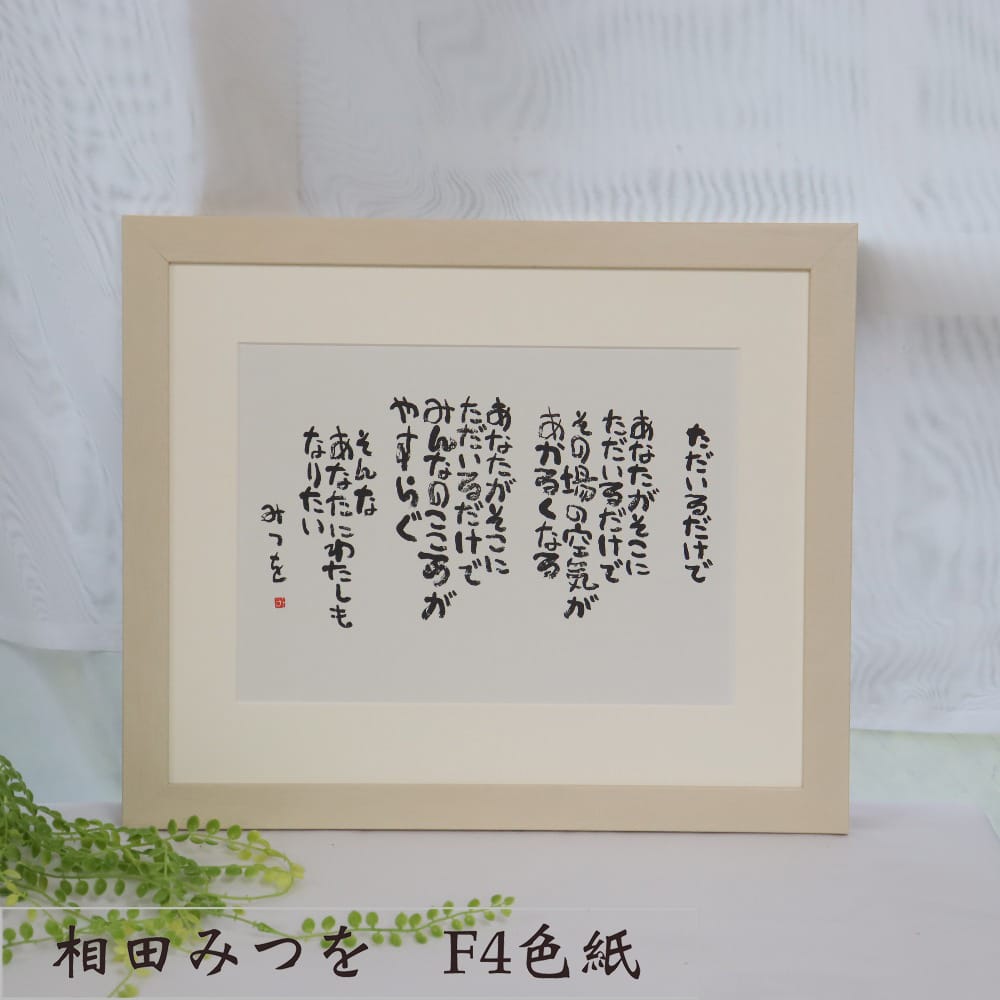 ただいるだけで
あなたがそこに
ただいるだけで
その場の空気が
あかるくなる
あなたがそこに
ただいるだけで
みんなのこころが
やすらぐ
そんな
あなたにわたしも
なりたい
みつを
相田みつを F4色紙